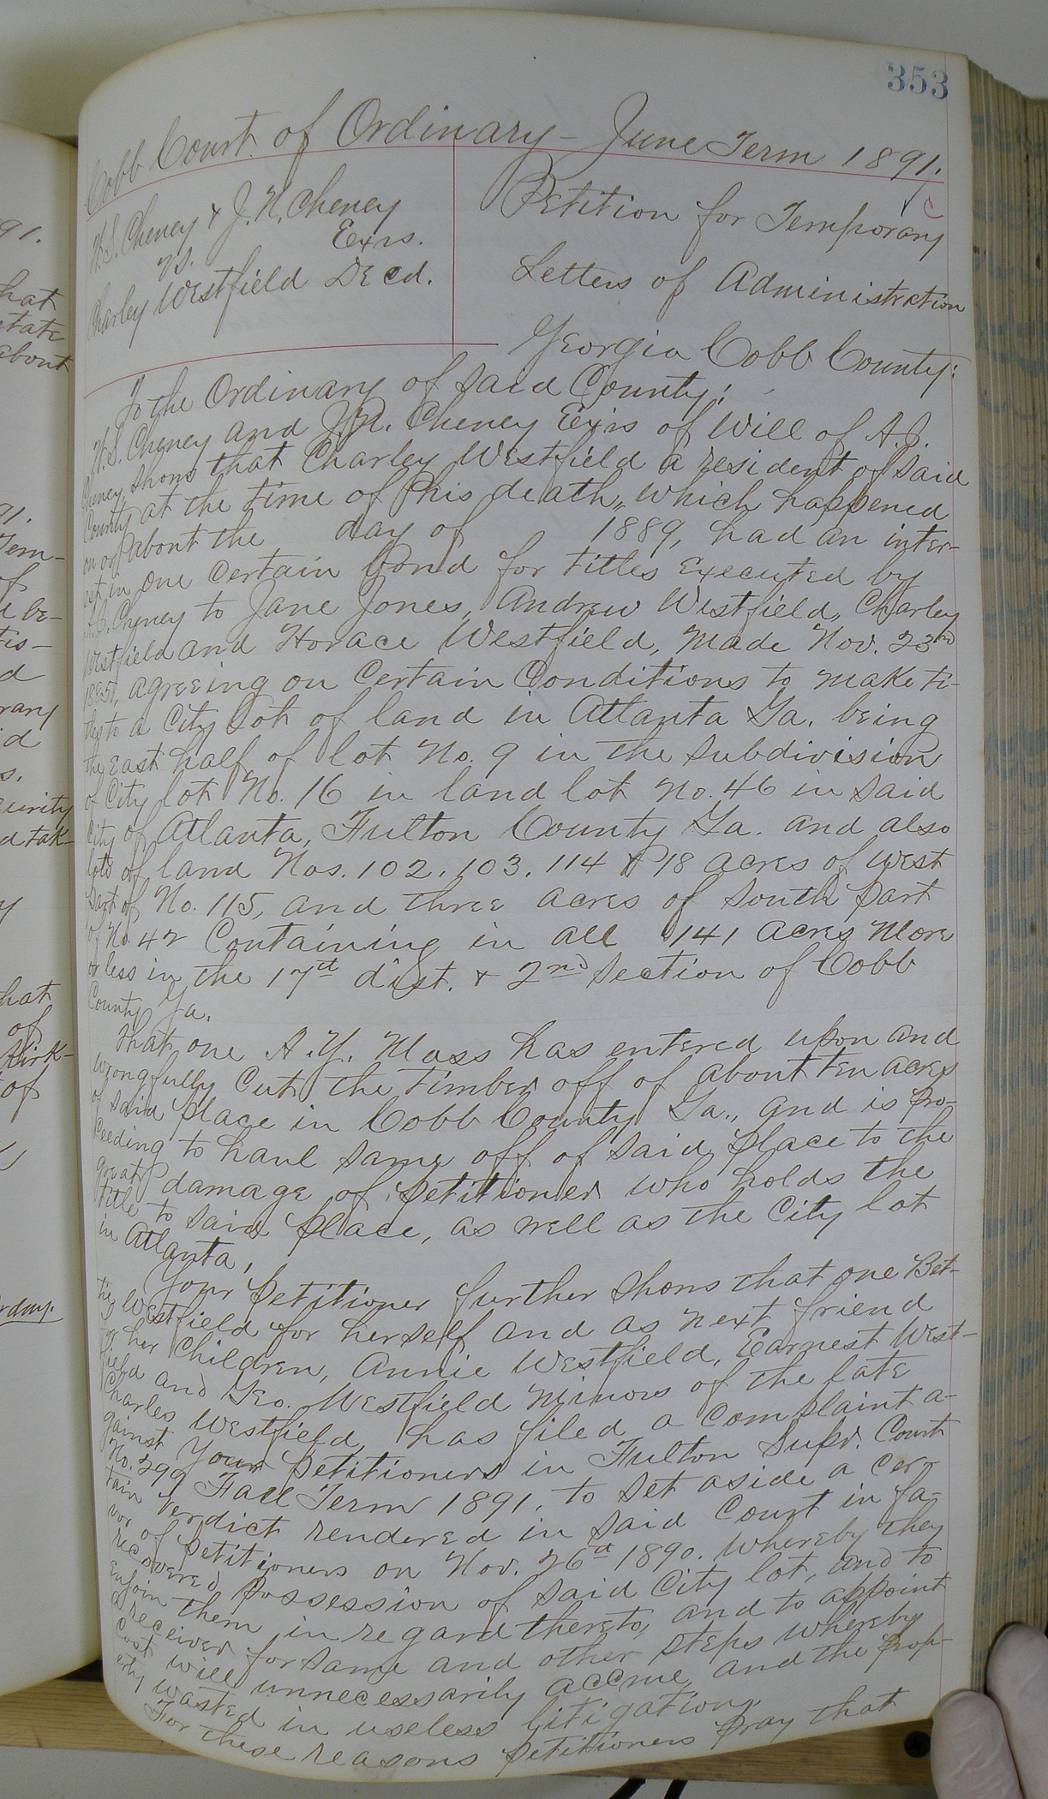 353
Cobb Court of Ordinary - June Term 1891.
W.S. Cheney & J.N. Cheney
Exrs.
vs.
Charley Westfield Decd.
Petition for Temporary
Letters of Administration
Georgia Cobb County:
To the Ordinary of said County:
W.S. Cheney and J.N. Cheney Exrs of Will of A.J.
Cheney shows that Charley Westfield a resident of said
County at the time of his death, which happened
on or about the day of 1889, had an inter-
est in one certain bond for titles executed by
A.J. Cheney to Jane Jones, Andrew Westfield, Charley
Westfield and Horace Westfield, made Nov. 23rd
1885, agreeing on certain conditions to make ti-
tles to a City lot of land in Atlanta Ga. being
the East half of lot No. 9 in the subdivision
of City lot No. 16 in land lot No. 46 in said
City of Atlanta, Fulton County Ga. and also
lots of land Nos. 102, 103, 114 & 18 acres of West
part of No. 115, and three acres of South part
of No. 42 Containing in all 141 acres more
or less in the 17th dist. & 2nd section of Cobb
County Ga.
That one A.Y. Mass has entered upon and
wrongfully cut the timber off of about ten acres
of said place in Cobb County Ga., and is pro-
ceeding to haul same off of said place to the
great damage of petitioner who holds the
title to said place, as well as the City lot
in Atlanta,
Your petitioner further shows that one Bet-
tie Westfield for herself and as next friend
of her children, Annie Westfield, Earnest West-
field and Geo. Westfield minors of the late
Charles Westfield, has filed a complaint a-
gainst Your petitioners in Fulton Supr. Court
No. 299 Fall Term 1891, to set aside a cer-
tain verdict rendered in said Court in fa-
vor of petitioners on Nov. 26th 1890. whereby they
recovered possession of said City lot, and to
enjoin them in regard thereto, and to appoint
a receiver for same and other steps whereby
cost will unnecessarily accrue and the prop-
erty wasted in useless litigation;
For these reasons petitioners pray that